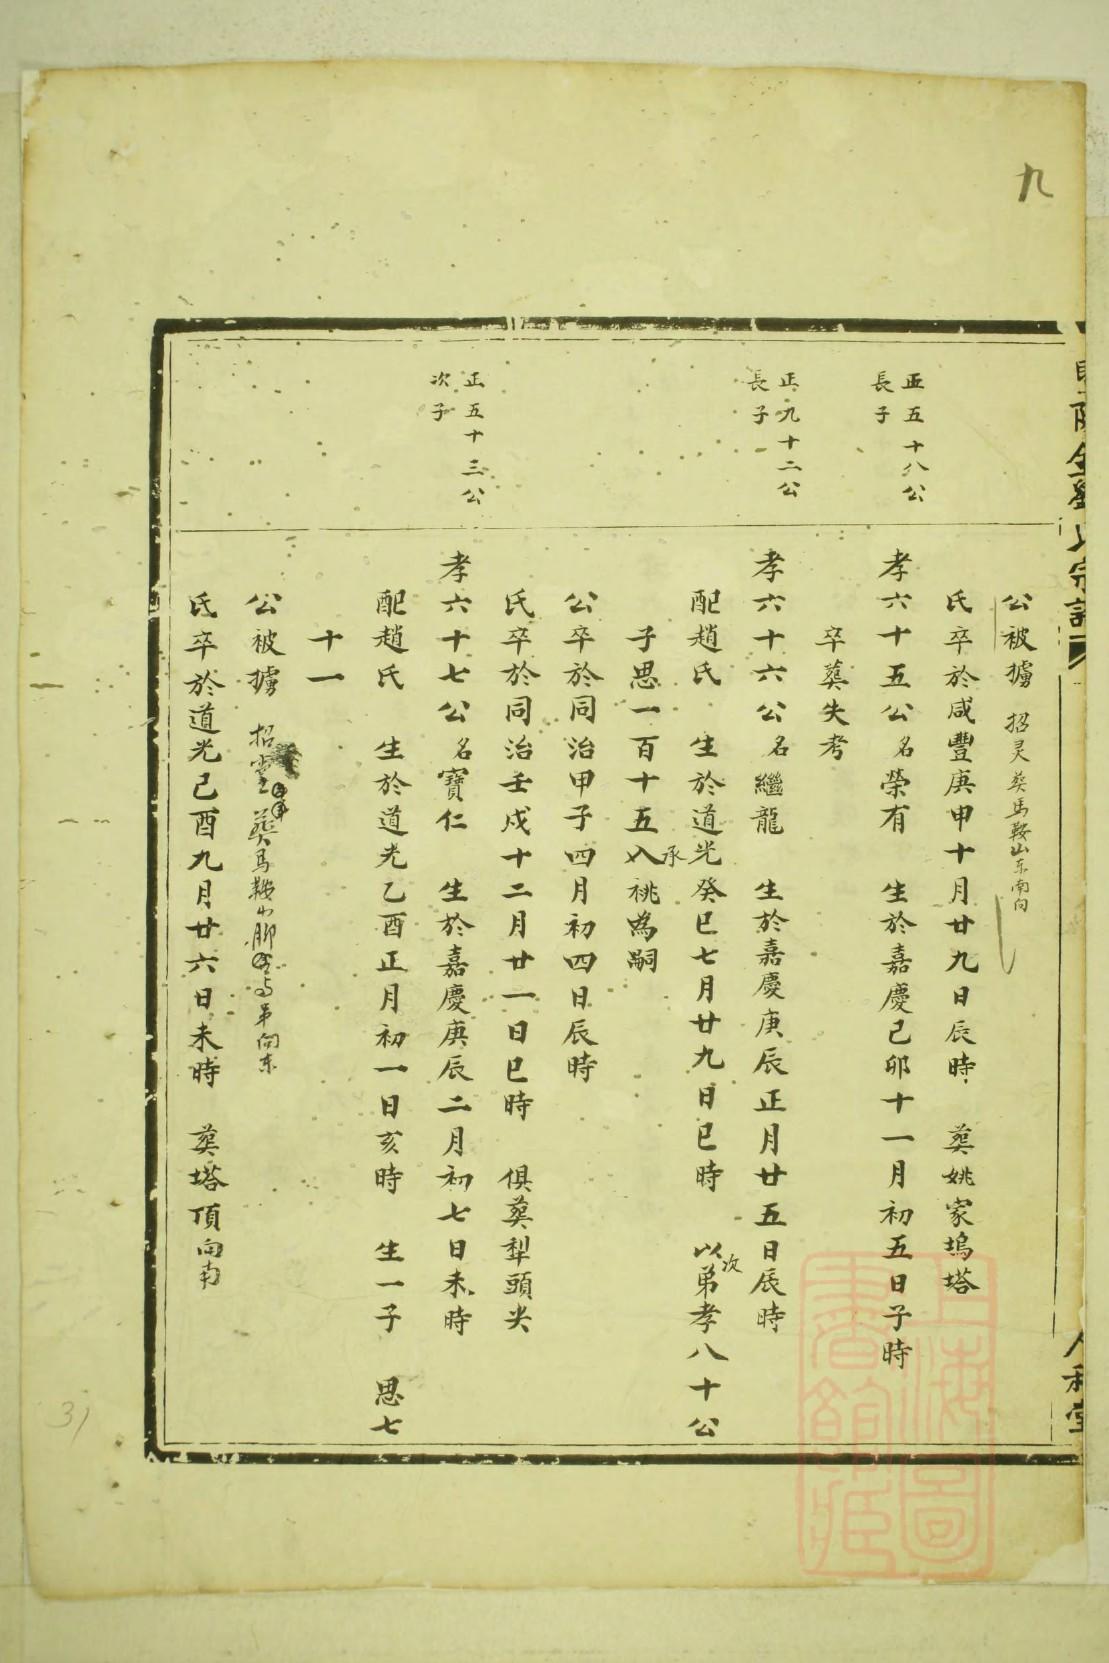 九
金劉氏宗譜
人和堂
公被擄 招灵葵馬鞍山东南向
氏卒於咸豐庚申十月廿九日辰時 葬姚家塢塔
正五十八公
長子
孝六十五公名榮有 生於嘉慶己卯十一月初五日子時
卒葬失考
正九十二公
長子
孝六十六公名繼龍 生於嘉慶庚辰正月廿五日辰時
配趙氏 生於道光癸巳七月廿九日巳時 以次弟孝八十公
子思一百十五入承祧為嗣
公卒於同治甲子四月初四日辰時
氏卒於同治壬戌十二月廿一日巳時 俱葬犁頭尖
正五十三公
次子
孝六十七公名寶仁 生於嘉慶庚辰二月初七日未時
配趙氏 生於道光乙酉正月初一日亥時 生一子 思七
十一
公被擄 招靈 葬馬鞍山脚 与弟向东
氏卒於道光己酉九月廿六日未時 葬塔頂向南
31
上海圖書館藏